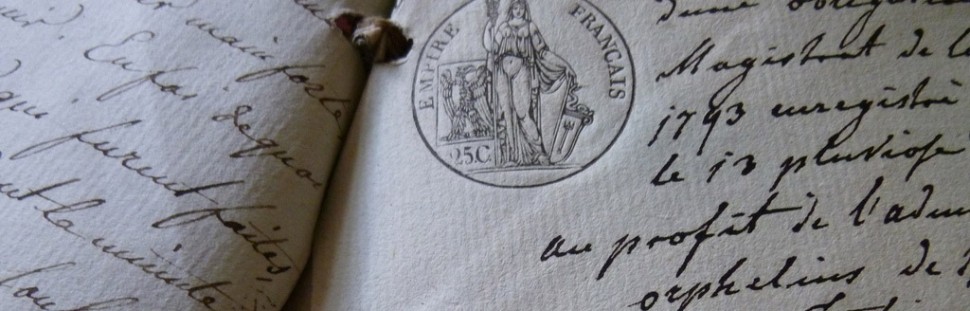 main forte
En foi de quoi
qui furent faites,
la minute
EMPIRE FRANÇAIS
25.C.
d'une obligation
Magistrat de
1793 enregistré
le 13 pluviose
au profit de l'adm
orphelins de